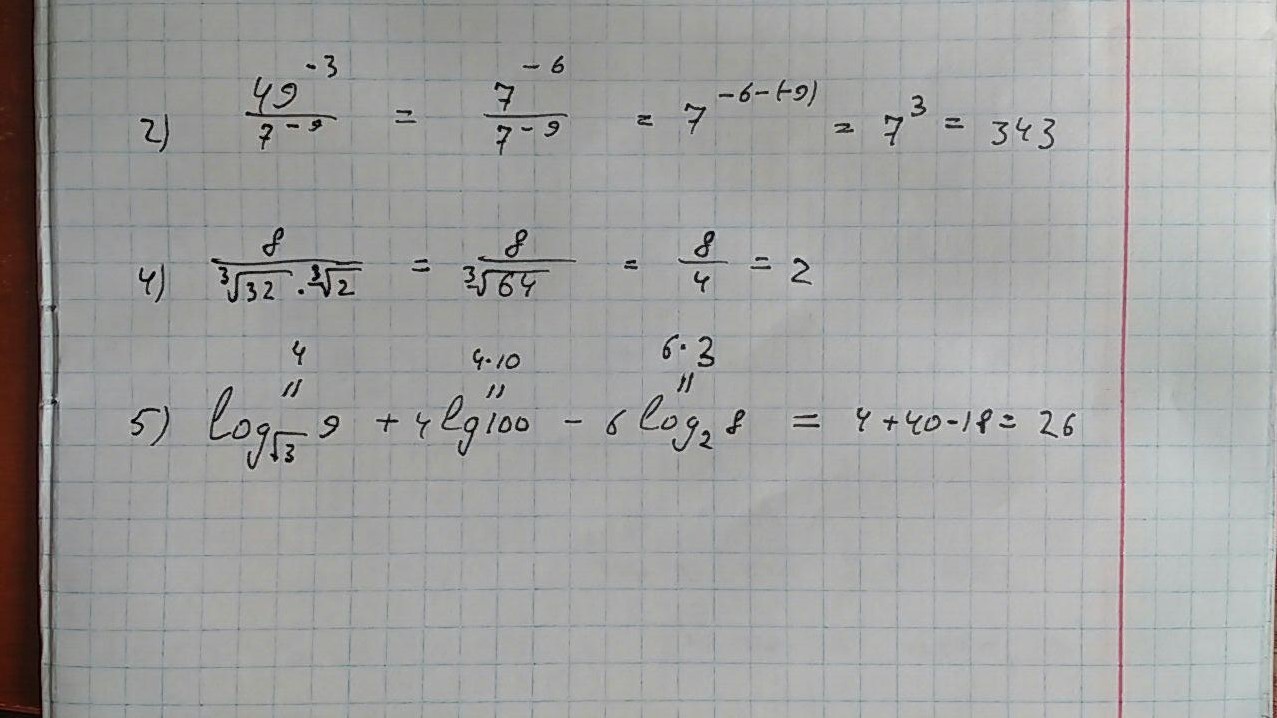 2) 49^-3 / 7^-9 = 7^-6 / 7^-9 = 7^-6-(-9) = 7^3 = 343
4) 8 / ∛32 · ∛2 = 8 / ∛64 = 8/4 = 2
4 4·10 6·3
= = =
5) log_√3 9 + 4 lg 100 - 6 log_2 8 = 4 + 40 - 18 = 26